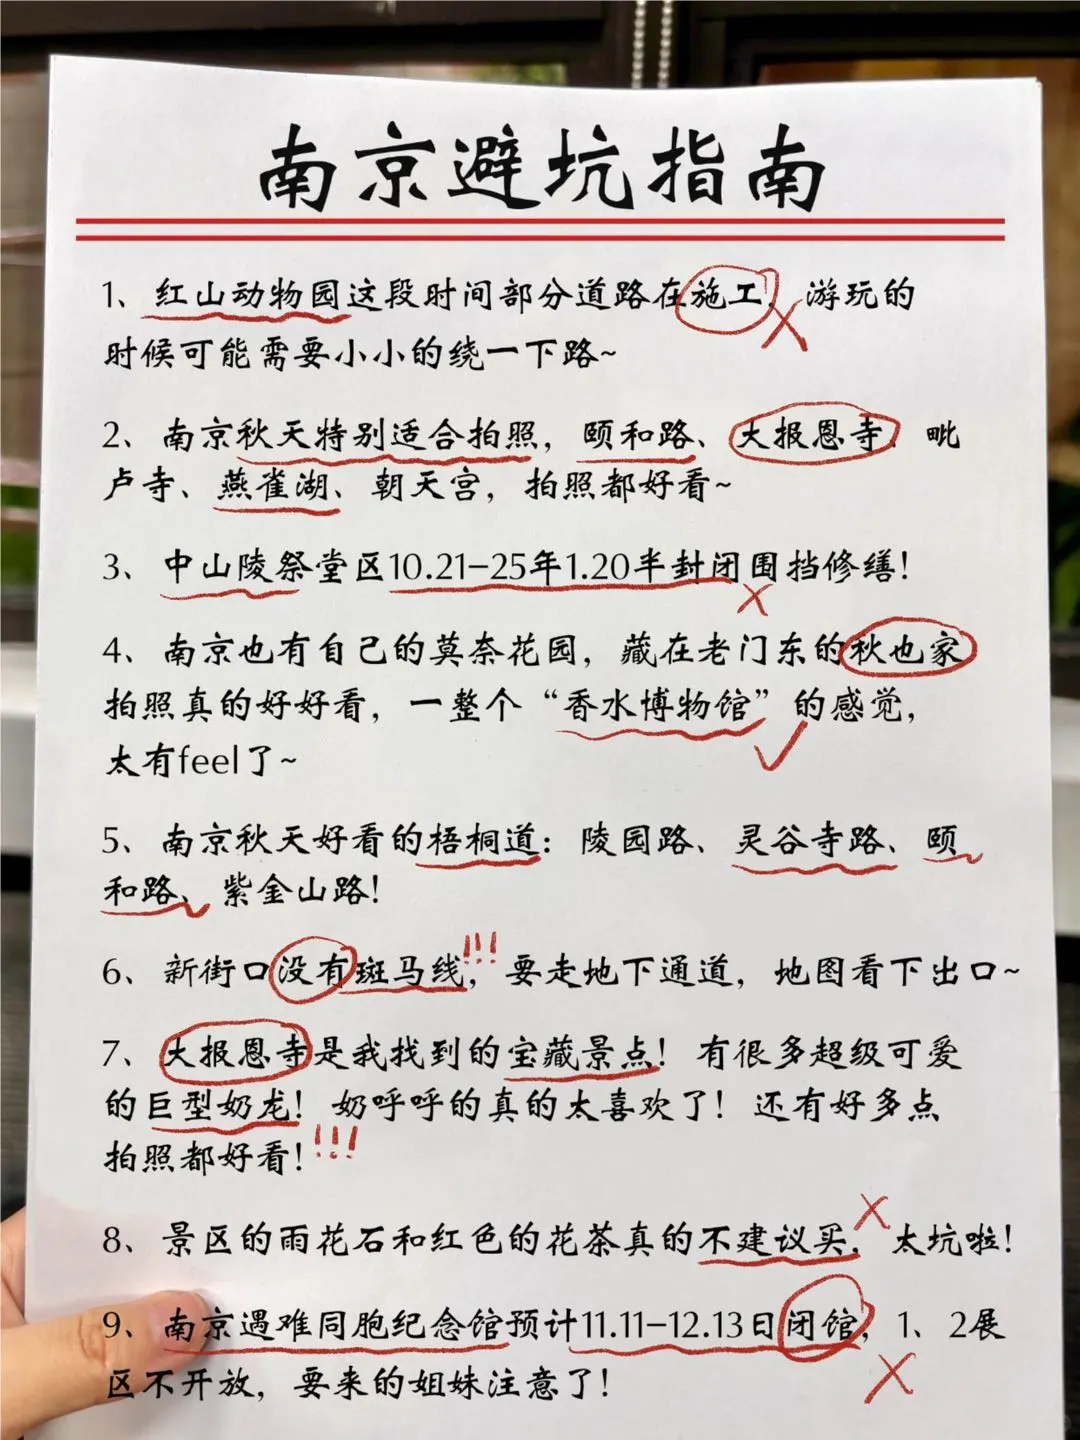 南京避坑指南
1、红山动物园这段时间部分道路在施工，游玩的
时候可能需要小小的绕一下路~
2、南京秋天特别适合拍照，颐和路、大报恩寺、毗
卢寺、燕雀湖、朝天宫，拍照都好看~
3、中山陵祭堂区10.21-25年1.20半封闭围挡修缮！
4、南京也有自己的莫奈花园，藏在老门东的秋也家
拍照真的好好看，一整个“香水博物馆”的感觉，
太有feel了~
5、南京秋天好看的梧桐道：陵园路、灵谷寺路、颐
和路、紫金山路！
6、新街口没有斑马线，!!!要走地下通道，地图看下出口~
7、大报恩寺是我找到的宝藏景点！有很多超级可爱
的巨型奶龙！奶呼呼的真的太喜欢了！还有好多点
拍照都好看！!!!
8、景区的雨花石和红色的花茶真的不建议买，太坑啦！
9、南京遇难同胞纪念馆预计11.11-12.13日闭馆，1、2展
区不开放，要来的姐妹注意了！